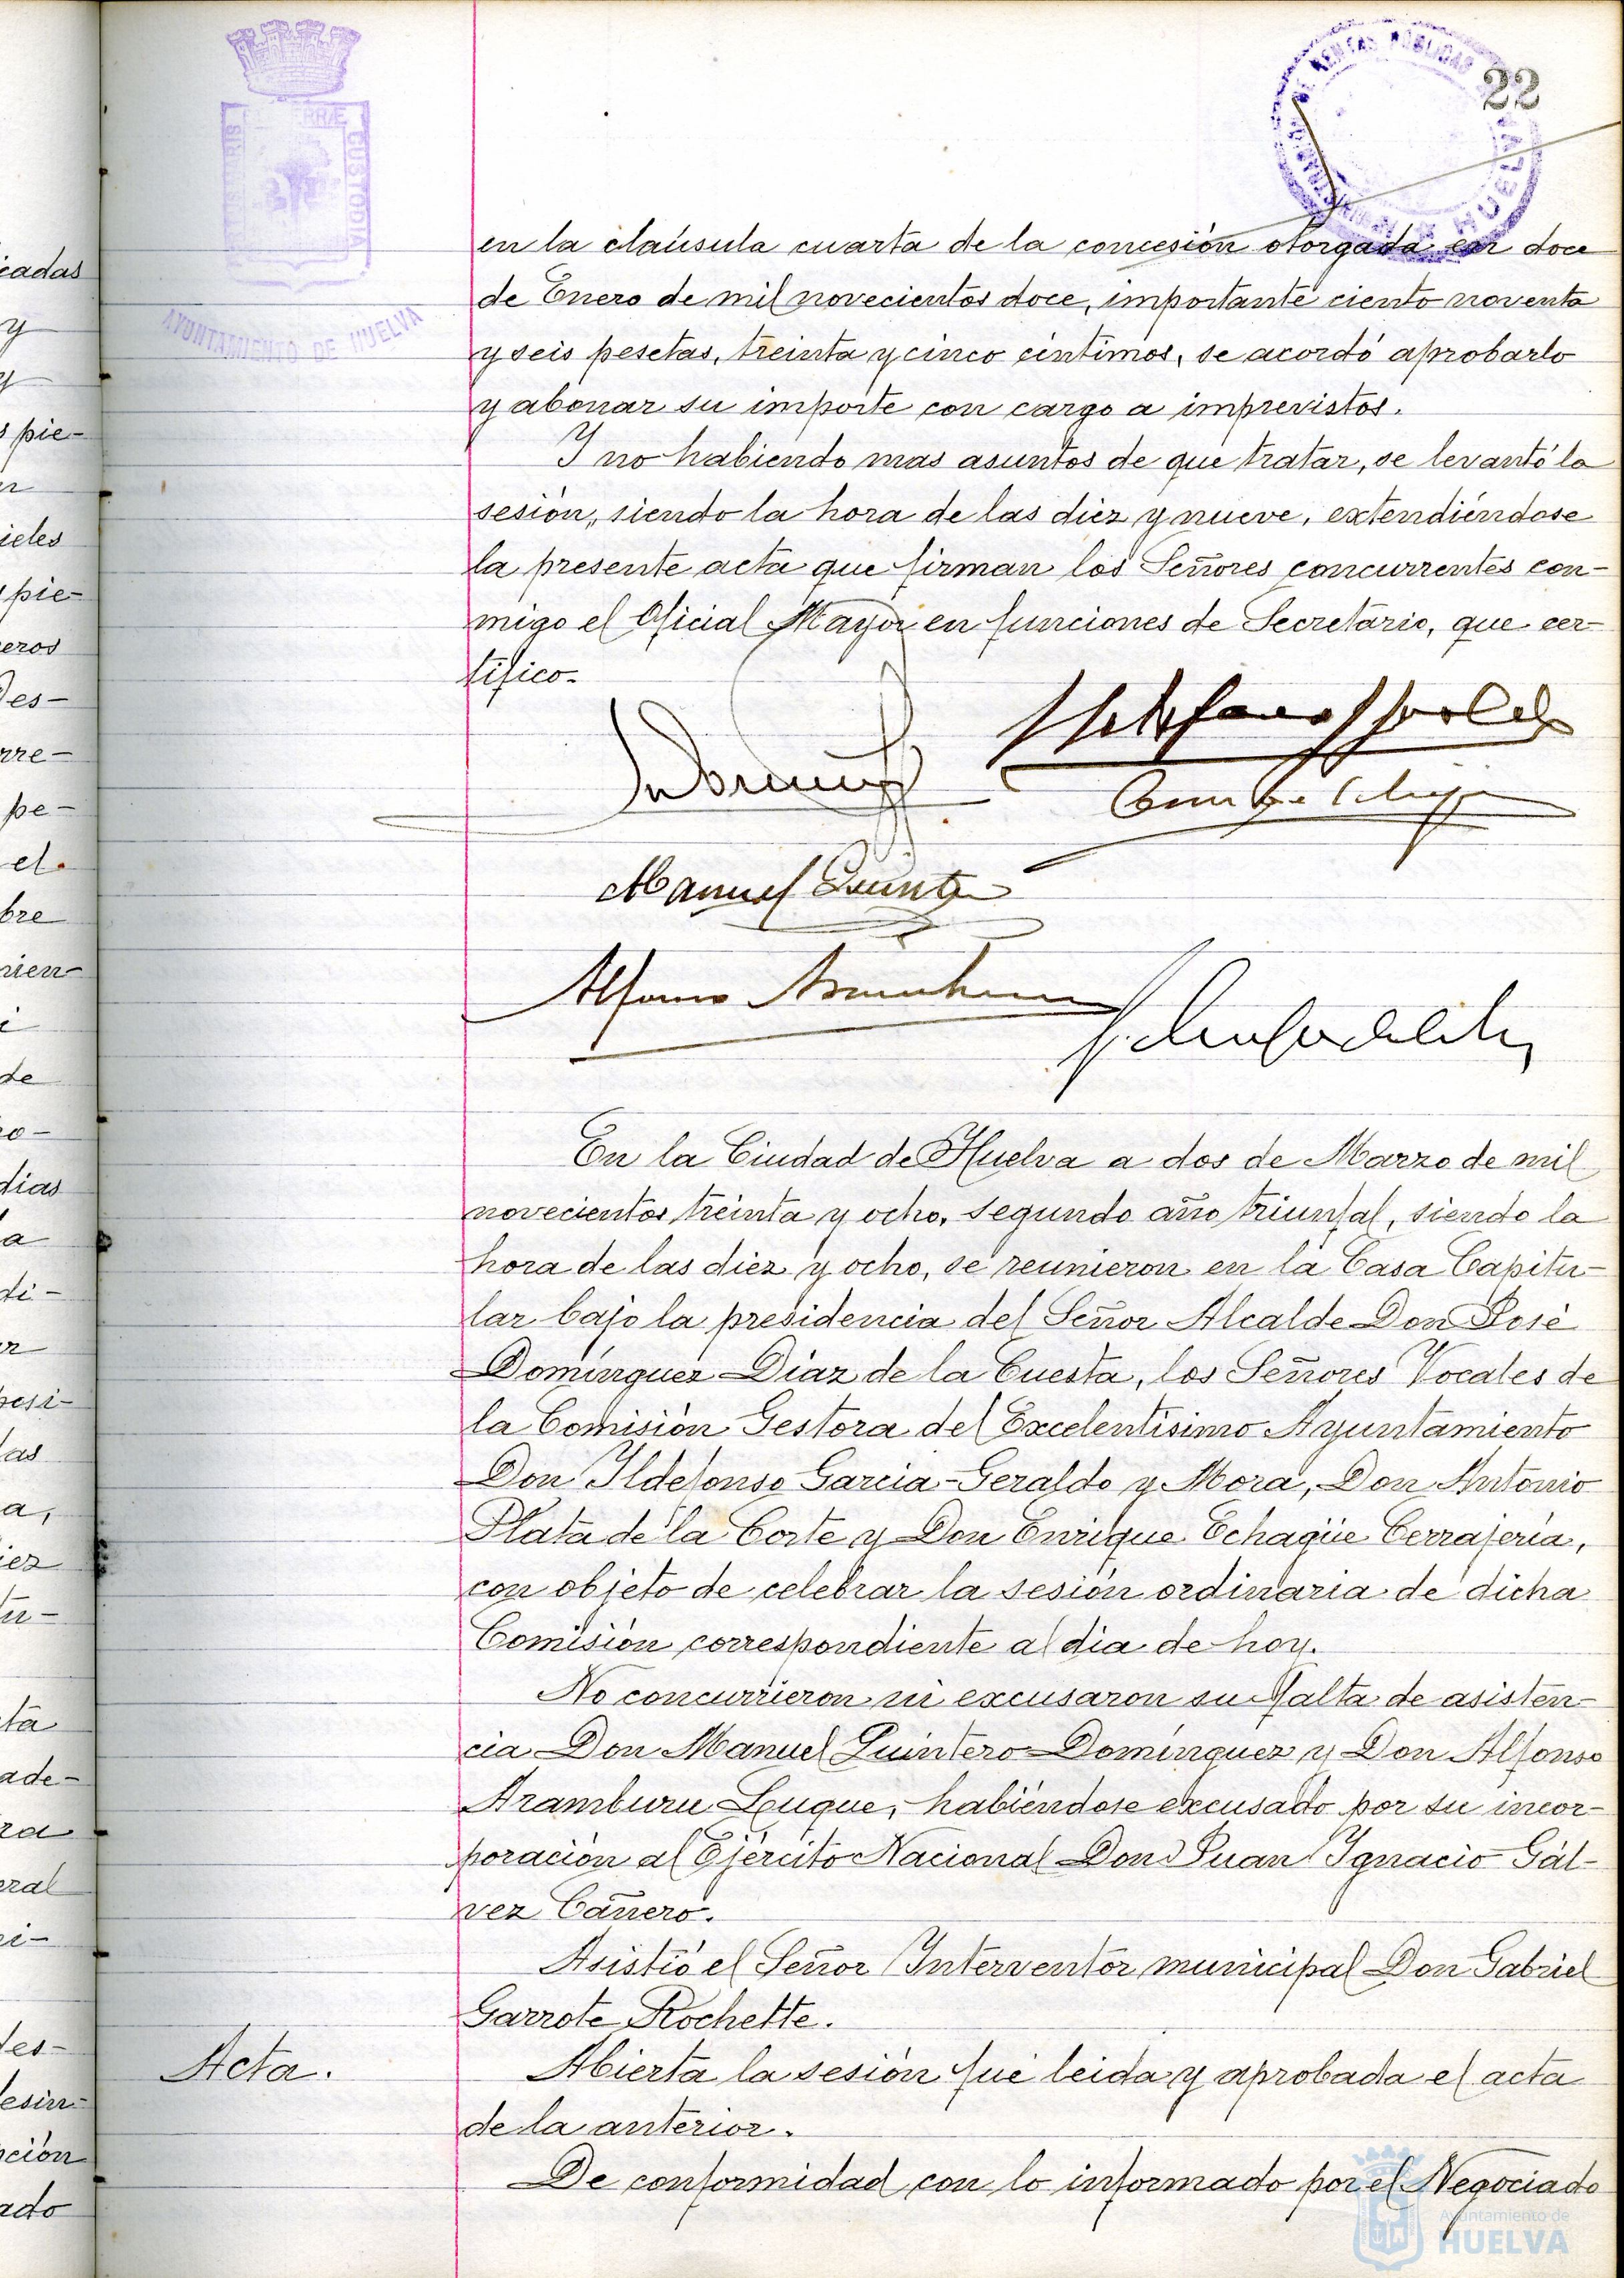 22
en la claúsula cuarta de la concesión otorgada en doce
de Enero de mil novecientos doce, importante ciento noventa
y seis pesetas, treinta y cinco céntimos, se acordó aprobarlo
y abonar su importe con cargo a imprevistos.
Y no habiendo mas asuntos de que tratar, se levantó la
sesión, siendo la hora de las diez y nueve, extendiéndose
la presente acta que firman los Señores concurrentes con-
migo el Oficial Mayor en funciones de Secretario, que cer-
tifico.
Manuel Quintero
Alfonso Aramburu
En la Ciudad de Huelva a dos de Marzo de mil
novecientos treinta y ocho, segundo año triunfal, siendo la
hora de las diez y ocho, se reunieron en la Casa Capitu-
lar bajo la presidencia del Señor Alcalde Don José
Domínguez Díaz de la Cuesta, los Señores Vocales de
la Comisión Gestora del Excelentísimo Ayuntamiento
Don Ildefonso García-Geraldo y Mora, Don Antonio
Plata de la Corte y Don Enrique Echagüe Cerrajería,
con objeto de celebrar la sesión ordinaria de dicha
Comisión correspondiente al día de hoy.
No concurrieron ni excusaron su falta de asisten-
cia Don Manuel Quintero Domínguez y Don Alfonso
Aramburu Luque, habiéndose excusado por su incor-
poración al Ejército Nacional Don Juan Ignacio Gál-
vez Cañero.
Asistió el Señor Interventor municipal Don Gabriel
Garrote Rochette.
Acta.
Abierta la sesión fué leida y aprobada el acta
de la anterior.
De conformidad con lo informado por el Negociado
AYUNTAMIENTO DE HUELVA
CUSTODIA
Ayuntamiento de
HUELVA
cadas
y
y
pie-
ieles
pie-
eros
Des-
rre-
pe-
el
bre
mien-
de
dias
a
di-
las
a,
iez
ta
ade-
ra
eral
des-
ción
ado